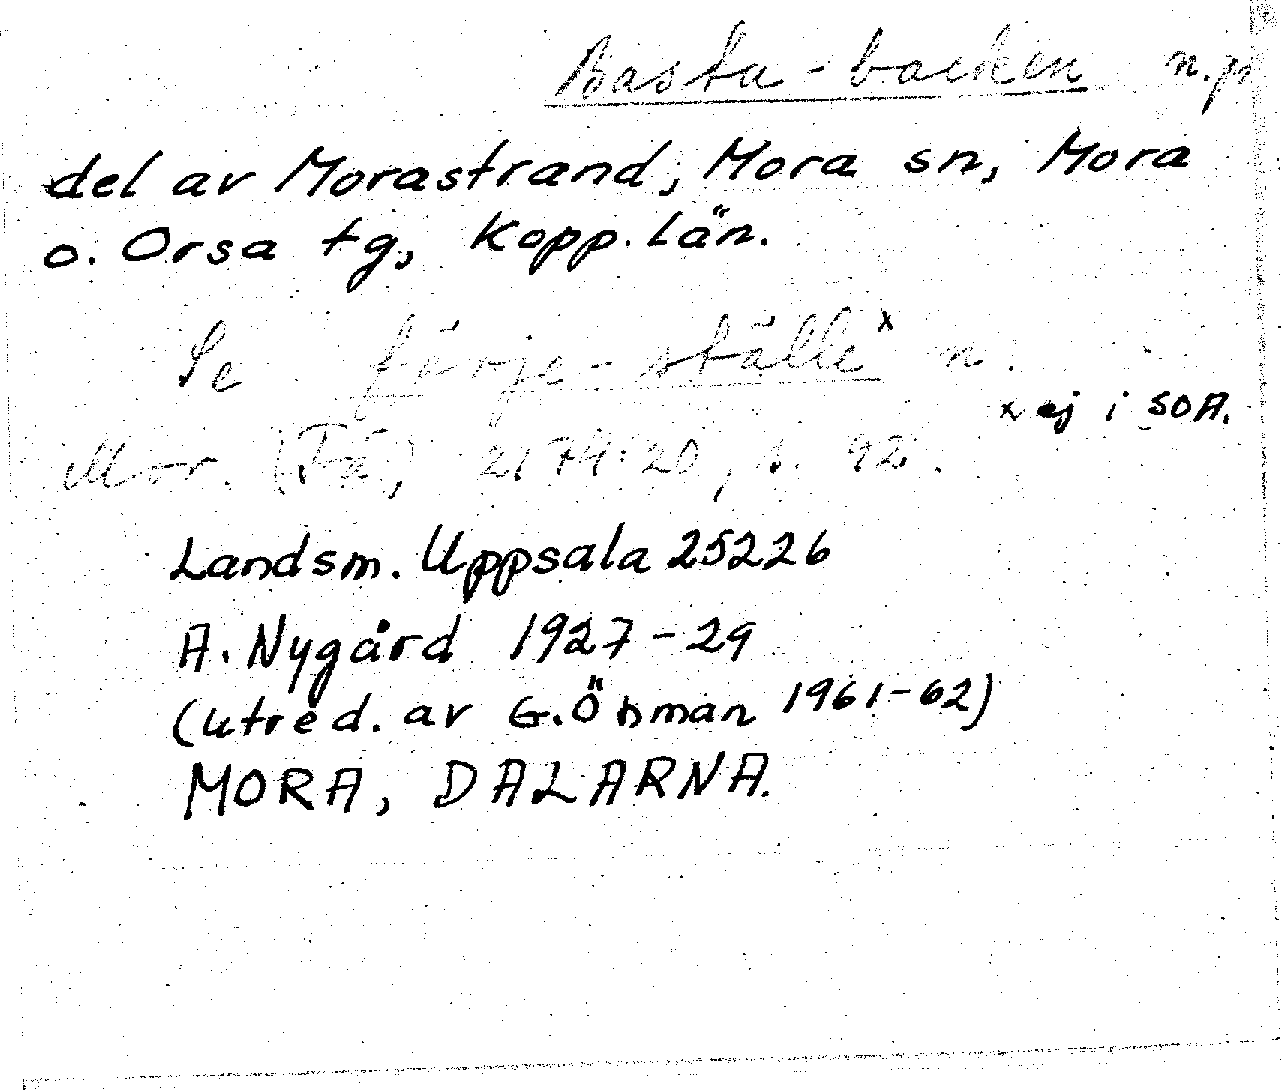 Basta-backen n.pr
del av Morastrand, Mora sn, Mora
o. Orsa tg, Kopp. län.
Se färje-ställe x n.
x ej i SOA.
Mor. (Få) 2174:20, s. 92.
Landsm. Uppsala 25226
A. Nygård 1927-29
(utred. av G. Öhman 1961-62)
MORA, DALARNA.